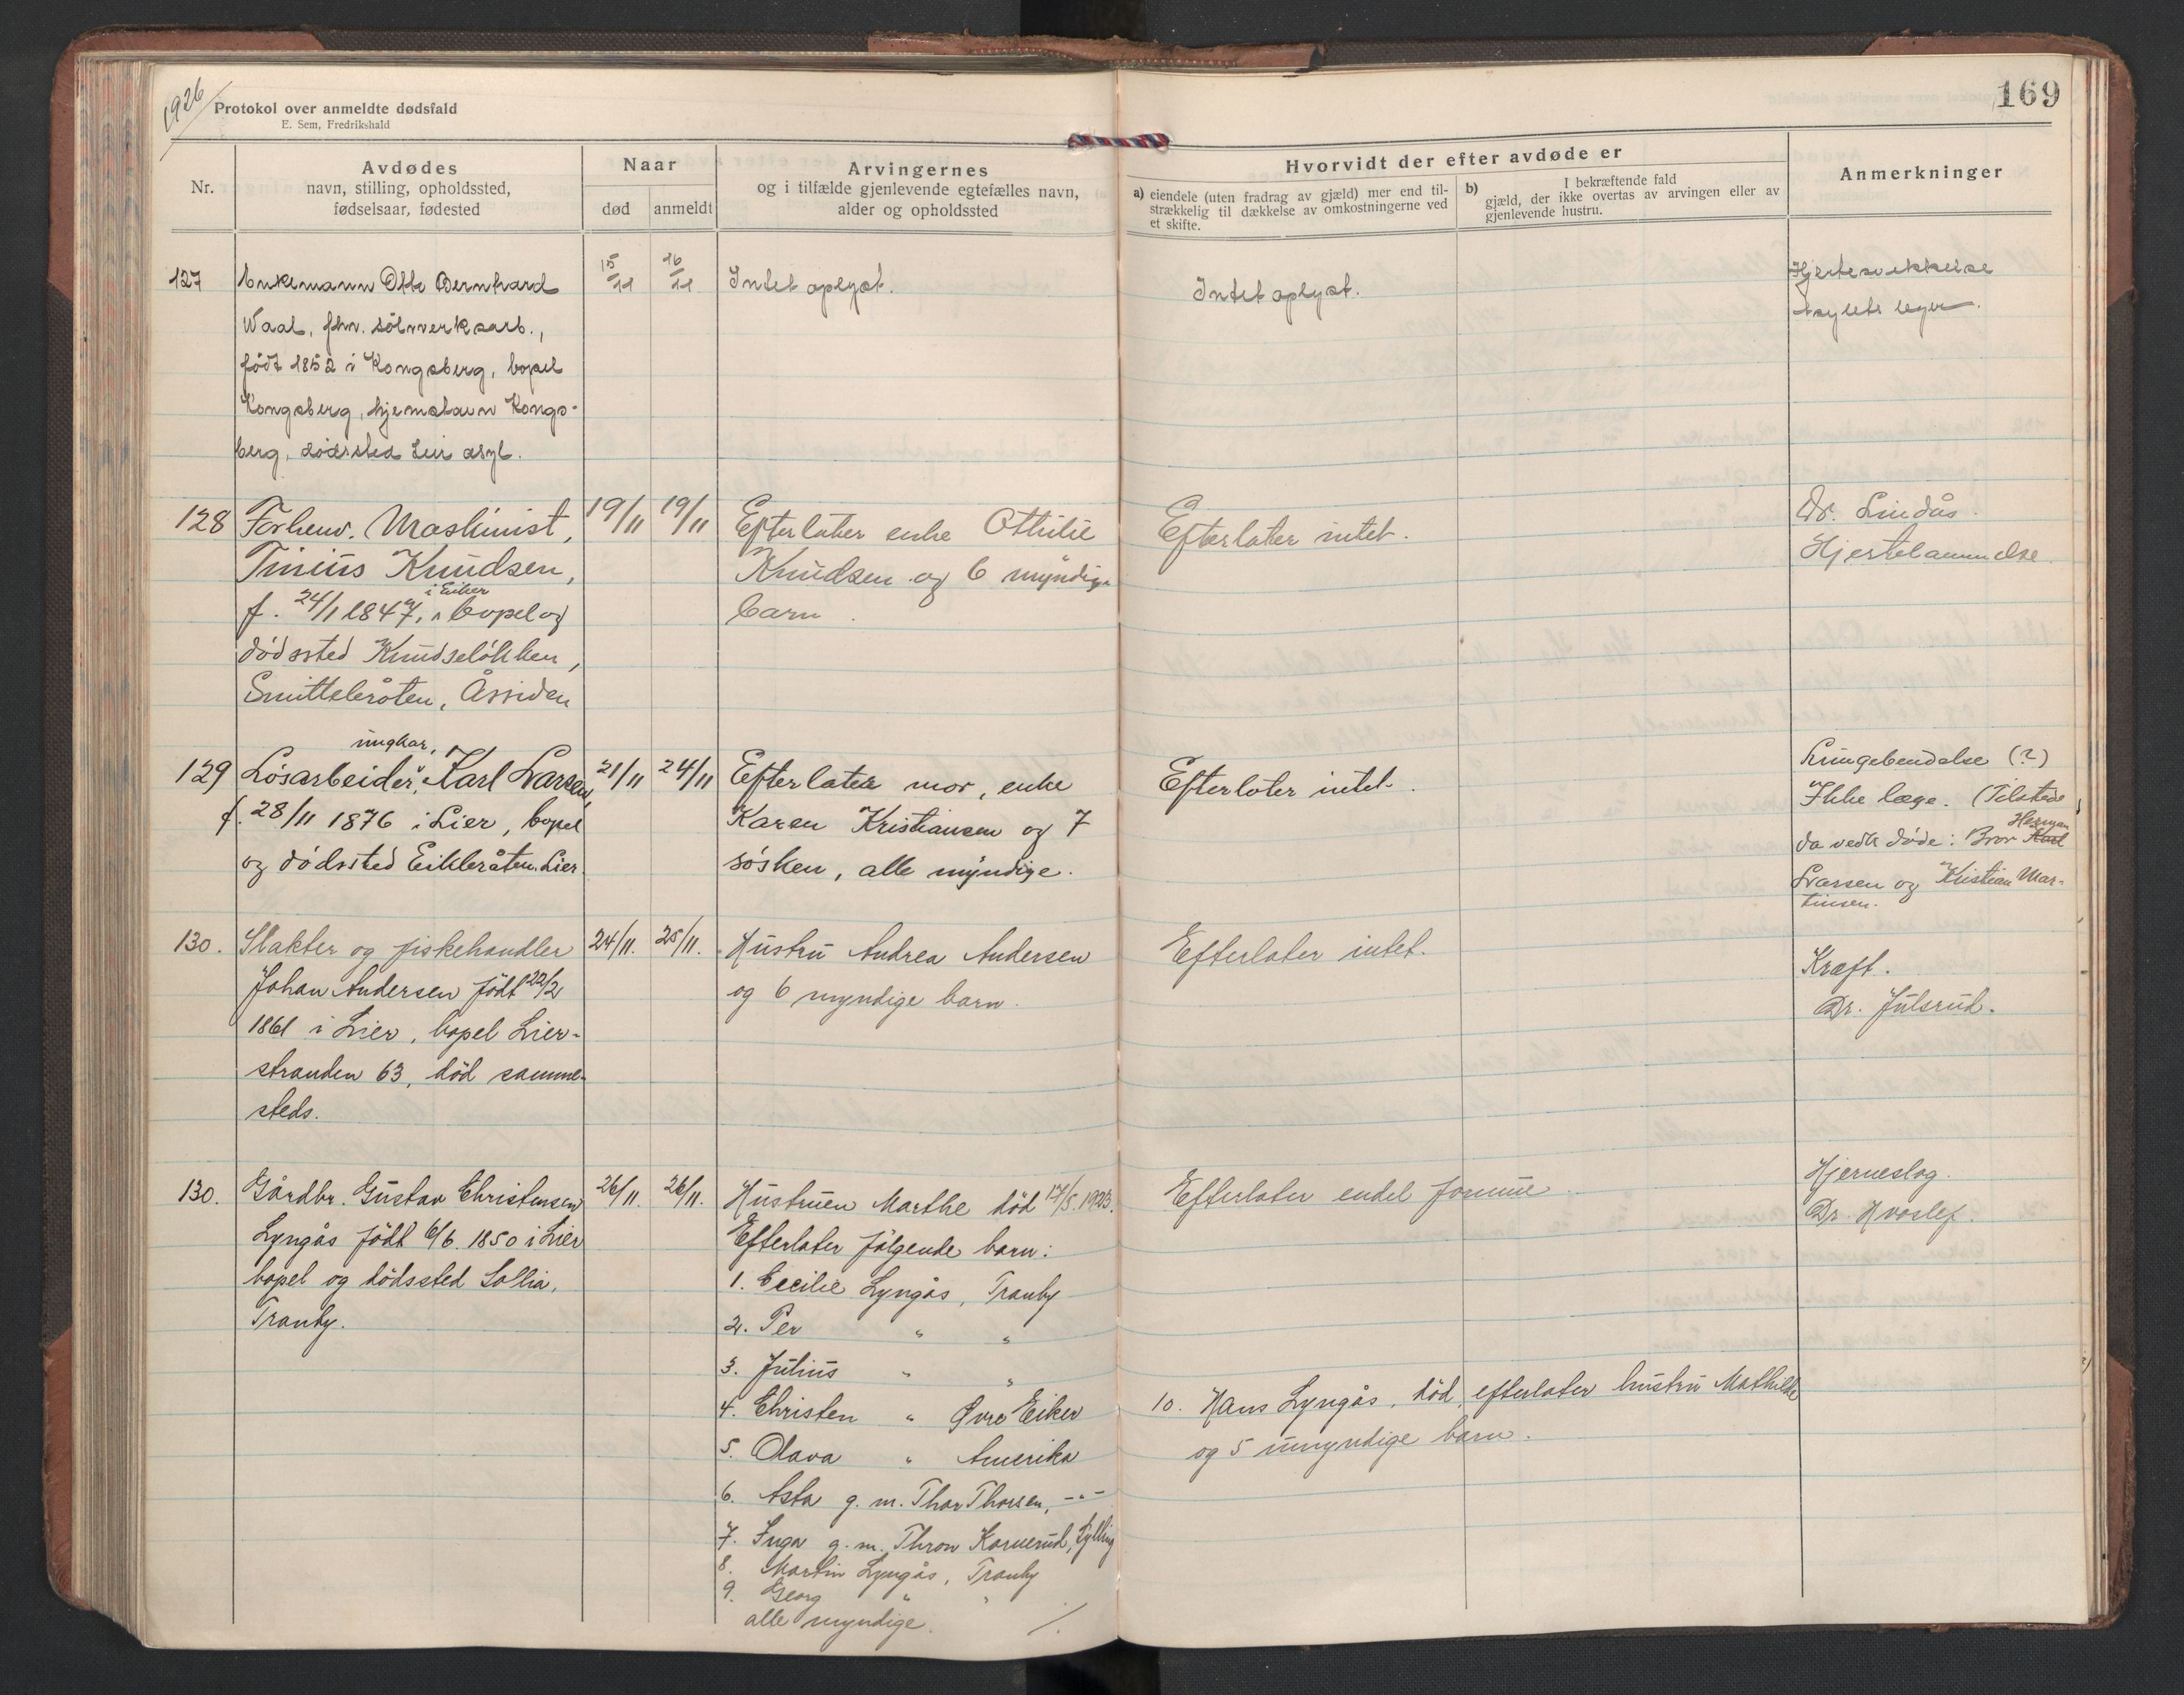 1926
Protokol over anmeldte dødsfald
E. Sem, Fredrikshald
169
Nr.
Avdødes
navn, stilling, opholdssted,
fødselsaar, fødested
Naar
død
anmeldt
Arvingernes
og i tilfælde gjenlevende egtefælles navn,
alder og opholdssted
Hvorvidt der efter avdøde er
a) eiendele (uten fradrag av gjæld) mer end til-
strækkelig til dækkelse av omkostningerne ved
et skifte.
b) I bekræftende fald
gjæld, der ikke overtas av arvingen eller av
gjenlevende hustru.
Anmerkninger
127
Enkemann Otto Bernhard
Waal, fhv. sölvverksarb.,
født 1852 i Kongsberg, bopel
Kongsberg, hjemstavn Kongs-
berg, dødssted Lier asyl.
15/11
16/11
Intet oplyst.
Intet oplyst.
Hjertesvekkelse
Asylets leger.
128
Forhenv. Maskinist,
Tinius Knudsen,
i Eiker
f. 24/1 1847, bopel og
dødssted Knudseløkken,
Smittebråten, Åssiden
19/11
19/11
Efterlater enke Othilie
Knudsen og 6 myndige
barn.
Efterlater intet.
Dr. Lindås.
Hjertelammelse
129
ungkar,
Løsarbeider, Karl Larsen,
f. 28/11 1876 i Lier, bopel
og dødssted Eikbråten, Lier.
21/11
24/11
Efterlater mor, enke
Karen Kristiansen og 7
søsken, alle myndige.
Efterlater intet.
Lungebendelse (?)
Ikke læge. (Tilstede
Herman
da vedk døde: Bror Karl
Larsen og Kristian Mar-
tinsen.
130.
Slakter og fiskehandler
Johan Andersen født 22/2
1861 i Lier, bopel Lier-
stranden 63, död samme-
steds.
24/11.
25/11.
Hustru Andrea Andersen
og 6 myndige barn.
Efterlater intet.
Kræft.
Dr. Julsrud.
130.
Gårdbr. Gustav Christensen
Lyngås födt 6/6. 1850 i Lier
bopel og dödssted Sollia,
Tranby.
26/11.
26/11.
Hustruen Marthe död 17/5. 1923.
Efterlater fölgende barn:
1. Cecilie Lyngås, Tranby
2. Per " "
3. Julius " "
4. Christen " Øvre Eiker
5. Olava " Amerika
6. Asta g. m. Thor Thorsen, -"-
7. Inga g. m. Thron Kornerud, Sylling
8. Martin Lyngås, Tranby
9. Georg " "
alle myndige. ./.
Efterlater endel formue.
10. Hans Lyngås, död, efterlater hustru Mathilde
og 5 umyndige barn.
Hjerneslag.
Dr. Hvoslef.